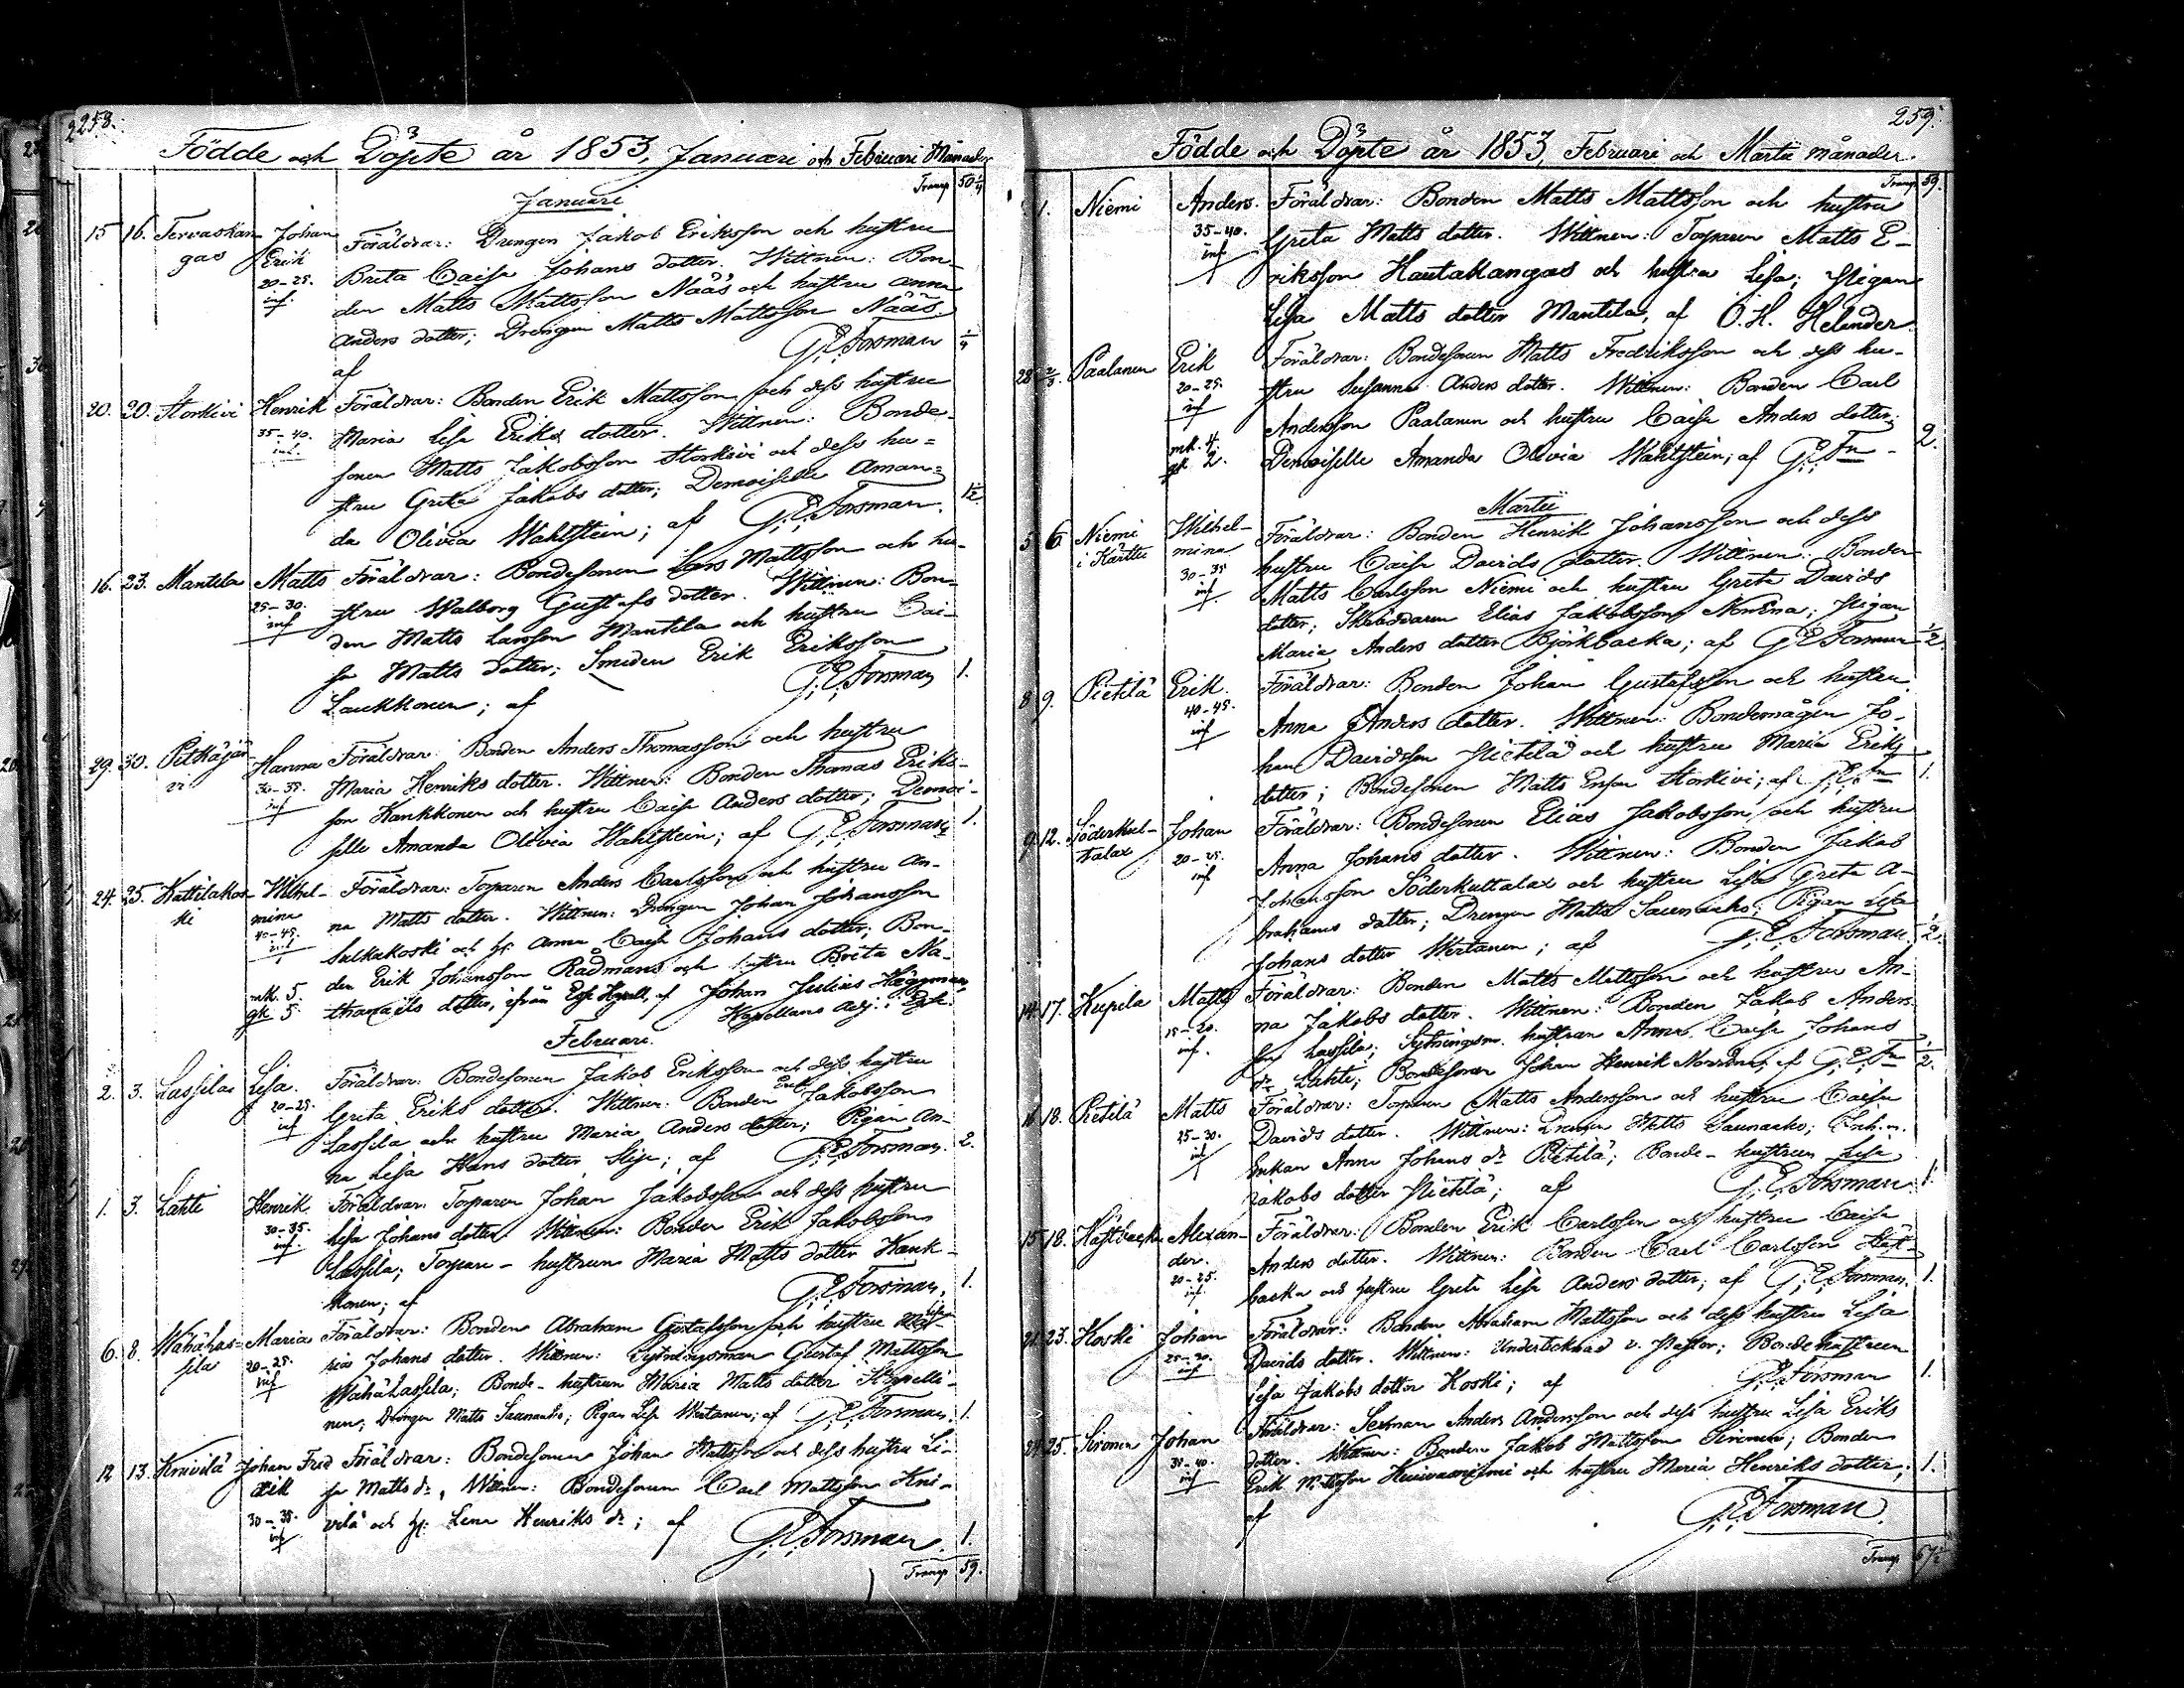 258.
Födde och Döpte år 1853, Januari och Februari Månader
Transp 50 1/4
Januari
15 16. Tervaskan- Johan Föräldrar: Drengen Jakob Eriksson och hustru
gas Erik Brita Caisa Johans dotter. Wittnen: Bon-
20-25. den Matts Mattsson Nääs och hustru Anna
inf. Anders dotter; Drengen Matts Mattsson Nääs.
af G.E. Forsman 1/4
20. 20. Storkivi Henrik Föräldrar: Bonden Erik Mattsson och dess hustru
35-40. Maria Lisa Eriks dotter. Wittnen: Bonde-
inf. sonen Matts Jakobsson Storkivi och dess hu-
stru Greta Jakobs dotter; Demoiselle Aman-
da Olivia Wahlstein; af G.E. Forsman. 1/2
16. 23. Mantila Matts Föräldrar: Bondesonen Lars Mattsson och hu-
25-30. stru Walborg Gustafs dotter. Wittnen: Bon-
inf den Matts Larsson Mantila och hustru Cai-
sa Matts dotter; Smeden Erik Eriksson
Laukkonen; af G.E. Forsman 1.
29. 30. Pitkäjär- Hanna Föräldrar: Bonden Anders Thomasson och hustru
vi 30-35. Maria Henriks dotter. Wittnen: Bonden Thomas Eriks-
inf son Kankkonen och hustru Caisa Anders dotter; Demoi-
selle Amanda Olivia Wahlstein; af G.E. Forsman 1.
24. 25. Kattilakos- Wilhel- Föräldrar: Torparen Anders Carlsson och hustru An-
ki mina na Matts dotter. Wittnen: Drengen Johan Johansson
40-45. Sulkakoski och h: Anna Caisa Johans dotter; Bon-
inf den Erik Johansson Rådmans och hustru Brita Na-
mk. 5. thanaels dotter, ifrån af Johan Julius Häggman
qk 5 Kapellans adj.
Februari.
2. 3. Lassila Lisa. Föräldrar: Bondesonen Jakob Eriksson och dess hustru
20-25. Greta Eriks dotter. Wittnen: Bonden Erik Jakobsson
inf Lassila och hustru Maria Anders dotter; Pigan An-
na Lisa Hans dotter af G.E. Forsman. 2.
1. 3. Lahti Henrik Föräldrar: Torparen Johan Jakobsson och dess hustru
30-35. Lisa Johans dotter. Wittnen: Bonden Erik Jakobsson
inf. Lassila; Torpare-hustrun Maria Matts dotter Kank-
konen; af G.E. Forsman, 1.
6. 8. Wähälas- Maria Föräldrar: Bonden Abraham Gustafsson och hustru
sila 20-25. Johans dotter. Wittnen: Sytningsman Gustaf Mattsson
inf Wähälassila; Bonde-hustrun Maria Matts dotter
nen; Drengen Matts Saunaaho; Pigan Lisa Wirtanen; af G.E. Forsman. 1.
12 13. Knivilä Johan Fred Föräldrar: Bondesonen Johan Mattsson och dess hustru Li-
rik sa Matts dr, Wittnen: Bondesonen Carl Mattsson Kni-
30-35. vilä och h: Lena Henriks dr; af G.E. Forsman. 1.
inf
Transp 59.
259.
Födde och Döpte år 1853, Februari och Martii månader.
Transp 59.
1. Niemi Anders. Föräldrar: Bonden Matts Mattsson och hustru
35-40. Greta Matts dotter. Wittnen: Torparen Matts E-
inf riksson Hautakangas och hustru Lisa; Pigan
Lisa Matts dotter Mantila; af O.H. Helander.
28 2/3. Paalanen Erik Föräldrar: Bondesonen Matts Fredriksson och dess hu-
20-25. stru Susanna Anders dotter. Wittnen: Bonden Carl
inf Andersson Paalanen och hustru Caisa Anders dotter;
mk. 4. Demoiselle Amanda Olivia Wahlstein; af G.E. Fn 2.
qk 2.
Martii
5 6 Niemi Wilhel- Föräldrar: Bonden Henrik Johansson och dess
i Kärtti mina hustru Caisa Davids dotter. Wittnen: Bonden
30-35 Matts Carlsson Niemi och hustru Greta Davids
inf. dotter; Skräddaren Elias Jakobsson Pigan
Maria Anders dotter Björkbacka; af G.E. Forsman 1/2.
8 9. Pietilä Erik. Föräldrar: Bonden Johan Gustafsson och hustru
40-45. Anna Anders dotter. Wittnen: Bondemågen Jo-
inf han Davidsson Pietilä och hustru Maria Eriks
dotter; Bondesonen Matts Ersson Storkivi; af G.E. Fn 1.
9. 12. Söderkul- Johan Föräldrar: Bondesonen Elias Jakobsson och hustru
talax 20-25. Anna Johans dotter. Wittnen: Bonden Jakob
inf Johansson Söderkultalax och hustru Lisa Greta A-
brahams dotter; Drengen Matts Saunaaho; Pigan Lisa
Johans dotter Wirtanen; af G.E. Forsman. 1/2.
14 17. Kupila Matts Föräldrar: Bonden Matts Mattsson och hustru An-
15-20. na Jakobs dotter. Wittnen: Bonden Jakob Anders-
inf. son Lassila; Sytningsm. hustrun Anna Caisa Johans
dr Lahti; Bondesonen Johan Henrik af G.E. Fn 1/2.
18. Pietilä Matts Föräldrar: Torparen Matts Andersson och hustru Caisa
25-30. Davids dotter. Wittnen: Drengen Matts Saunaaho;
inf Enkan Anna Johans dr Pietilä; Bonde-hustrun Lisa
Jakobs dotter Pietilä; af G.E. Forsman 1.
15 18. Hästbacka Alexan- Föräldrar: Bonden Erik Carlsson och hustru Caisa
der. Anders dotter. Wittnen: Bonden Carl Carlsson Häst-
20-25. backa och hustru Greta Lisa Anders dotter; af G.E. Forsman. 1.
inf.
23. Koski Johan Föräldrar: Bonden Abraham Mattsson och dess hustru Lisa
25-30. Davids dotter. Wittnen: Undertecknad v. Pastor; Bondehustrun
inf Lisa Jakobs dotter Koski; af G.E. Forsman 1.
24 25. Sironen Johan Föräldrar: Sexman Anders Andersson och dess hustru Lisa Eriks
35-40. dotter. Wittnen: Bonden Jakob Mattsson Sironen; Bonden
inf Erik Mattsson och hustru Maria Henriks dotter; 1.
af G.E. Forsman.
Transp 67 1/2